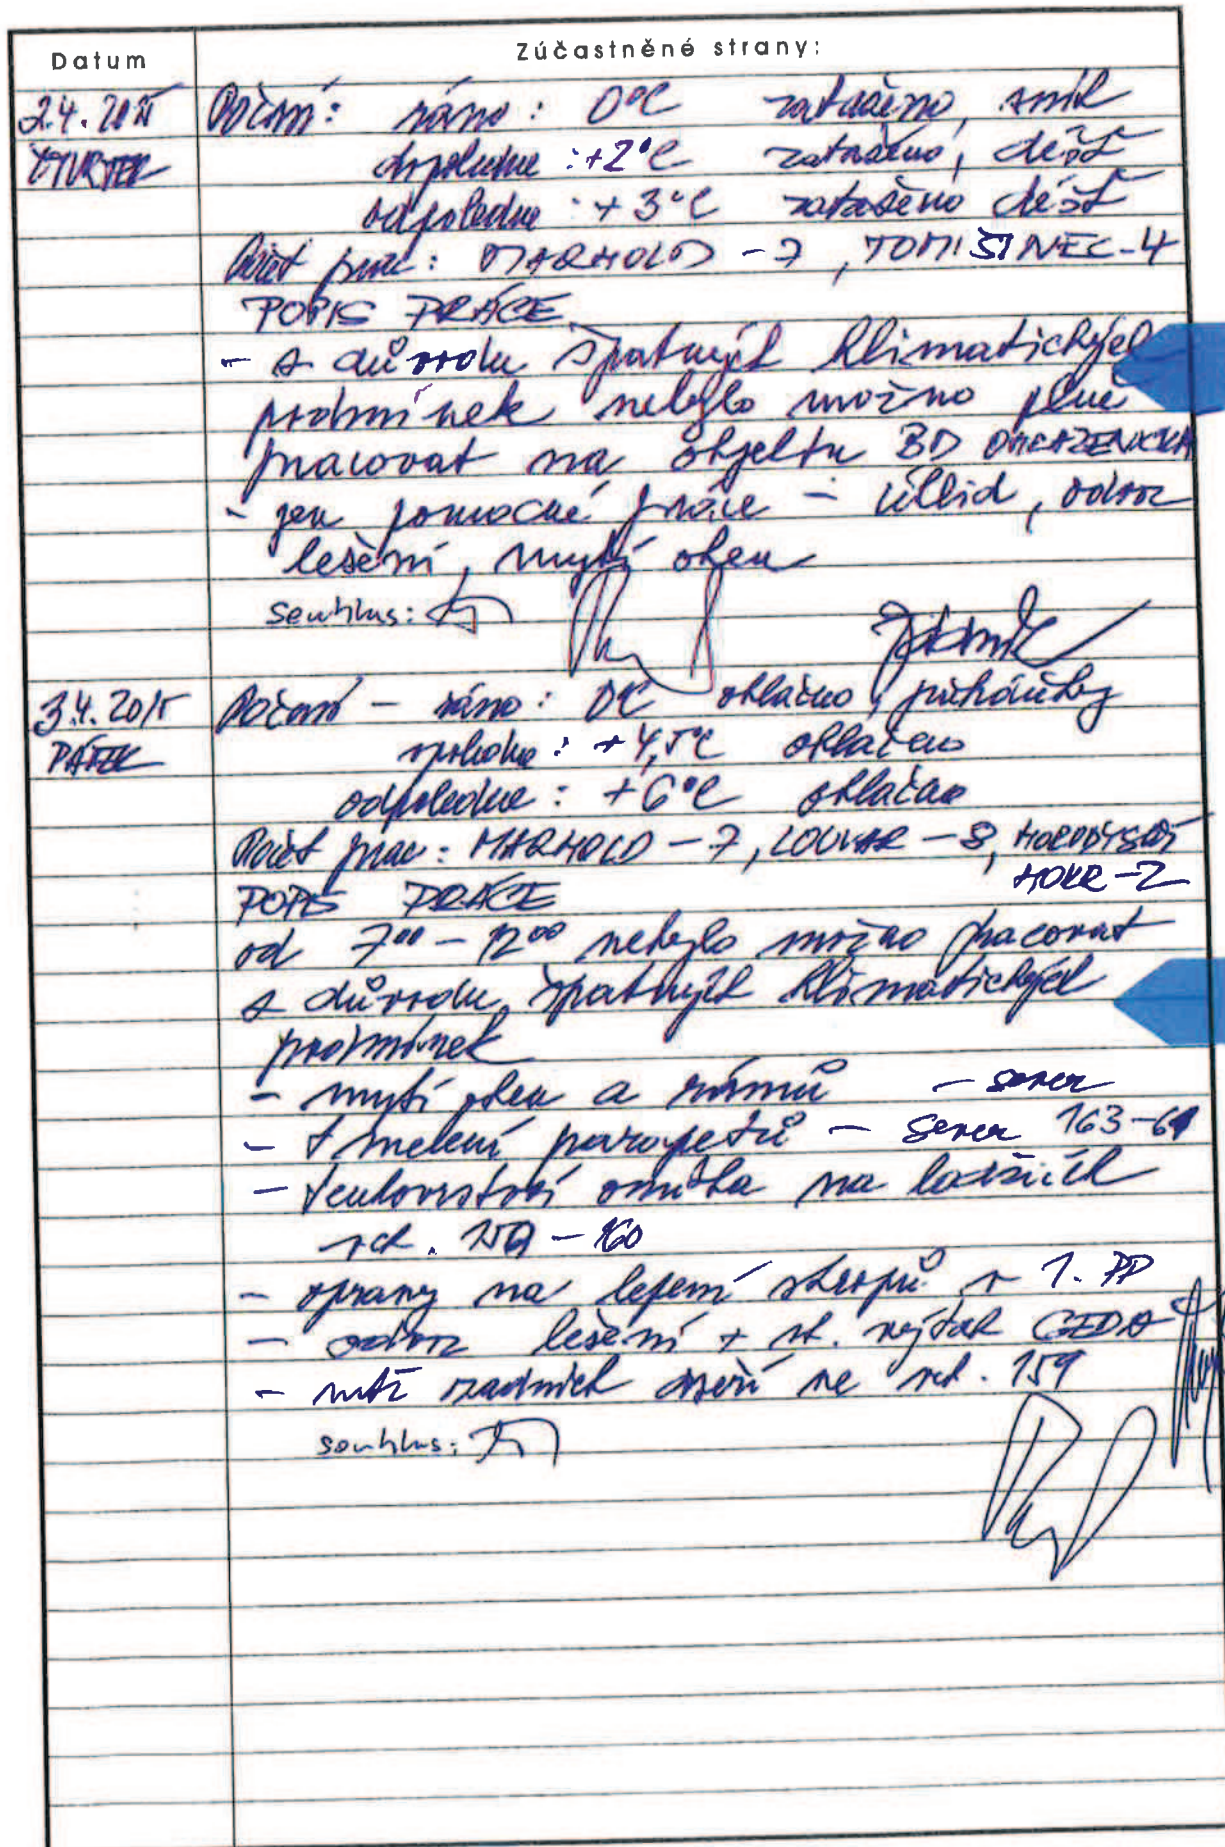 Datum Zúčastněné strany:
2.4. 2015 Počasí: ráno: 0°C zataženo, sníh
ČTVRTEK dopoledne: +2°C zataženo, déšť
odpoledne: +3°C zataženo déšť
Počet prac: MARHOLD - 7, TOMIŠINEC - 4
POPIS PRÁCE
- z důvodu špatných klimatických
podmínek nebylo možno plně
pracovat na objektu BD
- jen pomocné práce - úklid, odvoz
lešení, mytí oken
souhlas:
3.4. 2015 Počasí - ráno: 0°C oblačno, přeháňky
PÁTEK poledne: +4,5°C oblačno
odpoledne: +6°C oblačno
Počet prac: MARHOLD - 7, LOUVAR - 8,
HOKR - 2
POPIS PRÁCE
od 7⁰⁰ - 12⁰⁰ nebylo možno pracovat
z důvodu špatných klimatických
podmínek
- mytí oken a rámů - sever
- tmelení parapetů - sever 163-61
- tenkovrstvá omítka na lodžiích
vch. 159 - 160
- opravy na lepení stropů v 1. PP
- odvoz lešení + st. výtah GEDA
- zadních dveří ve vch. 159
souhlas: